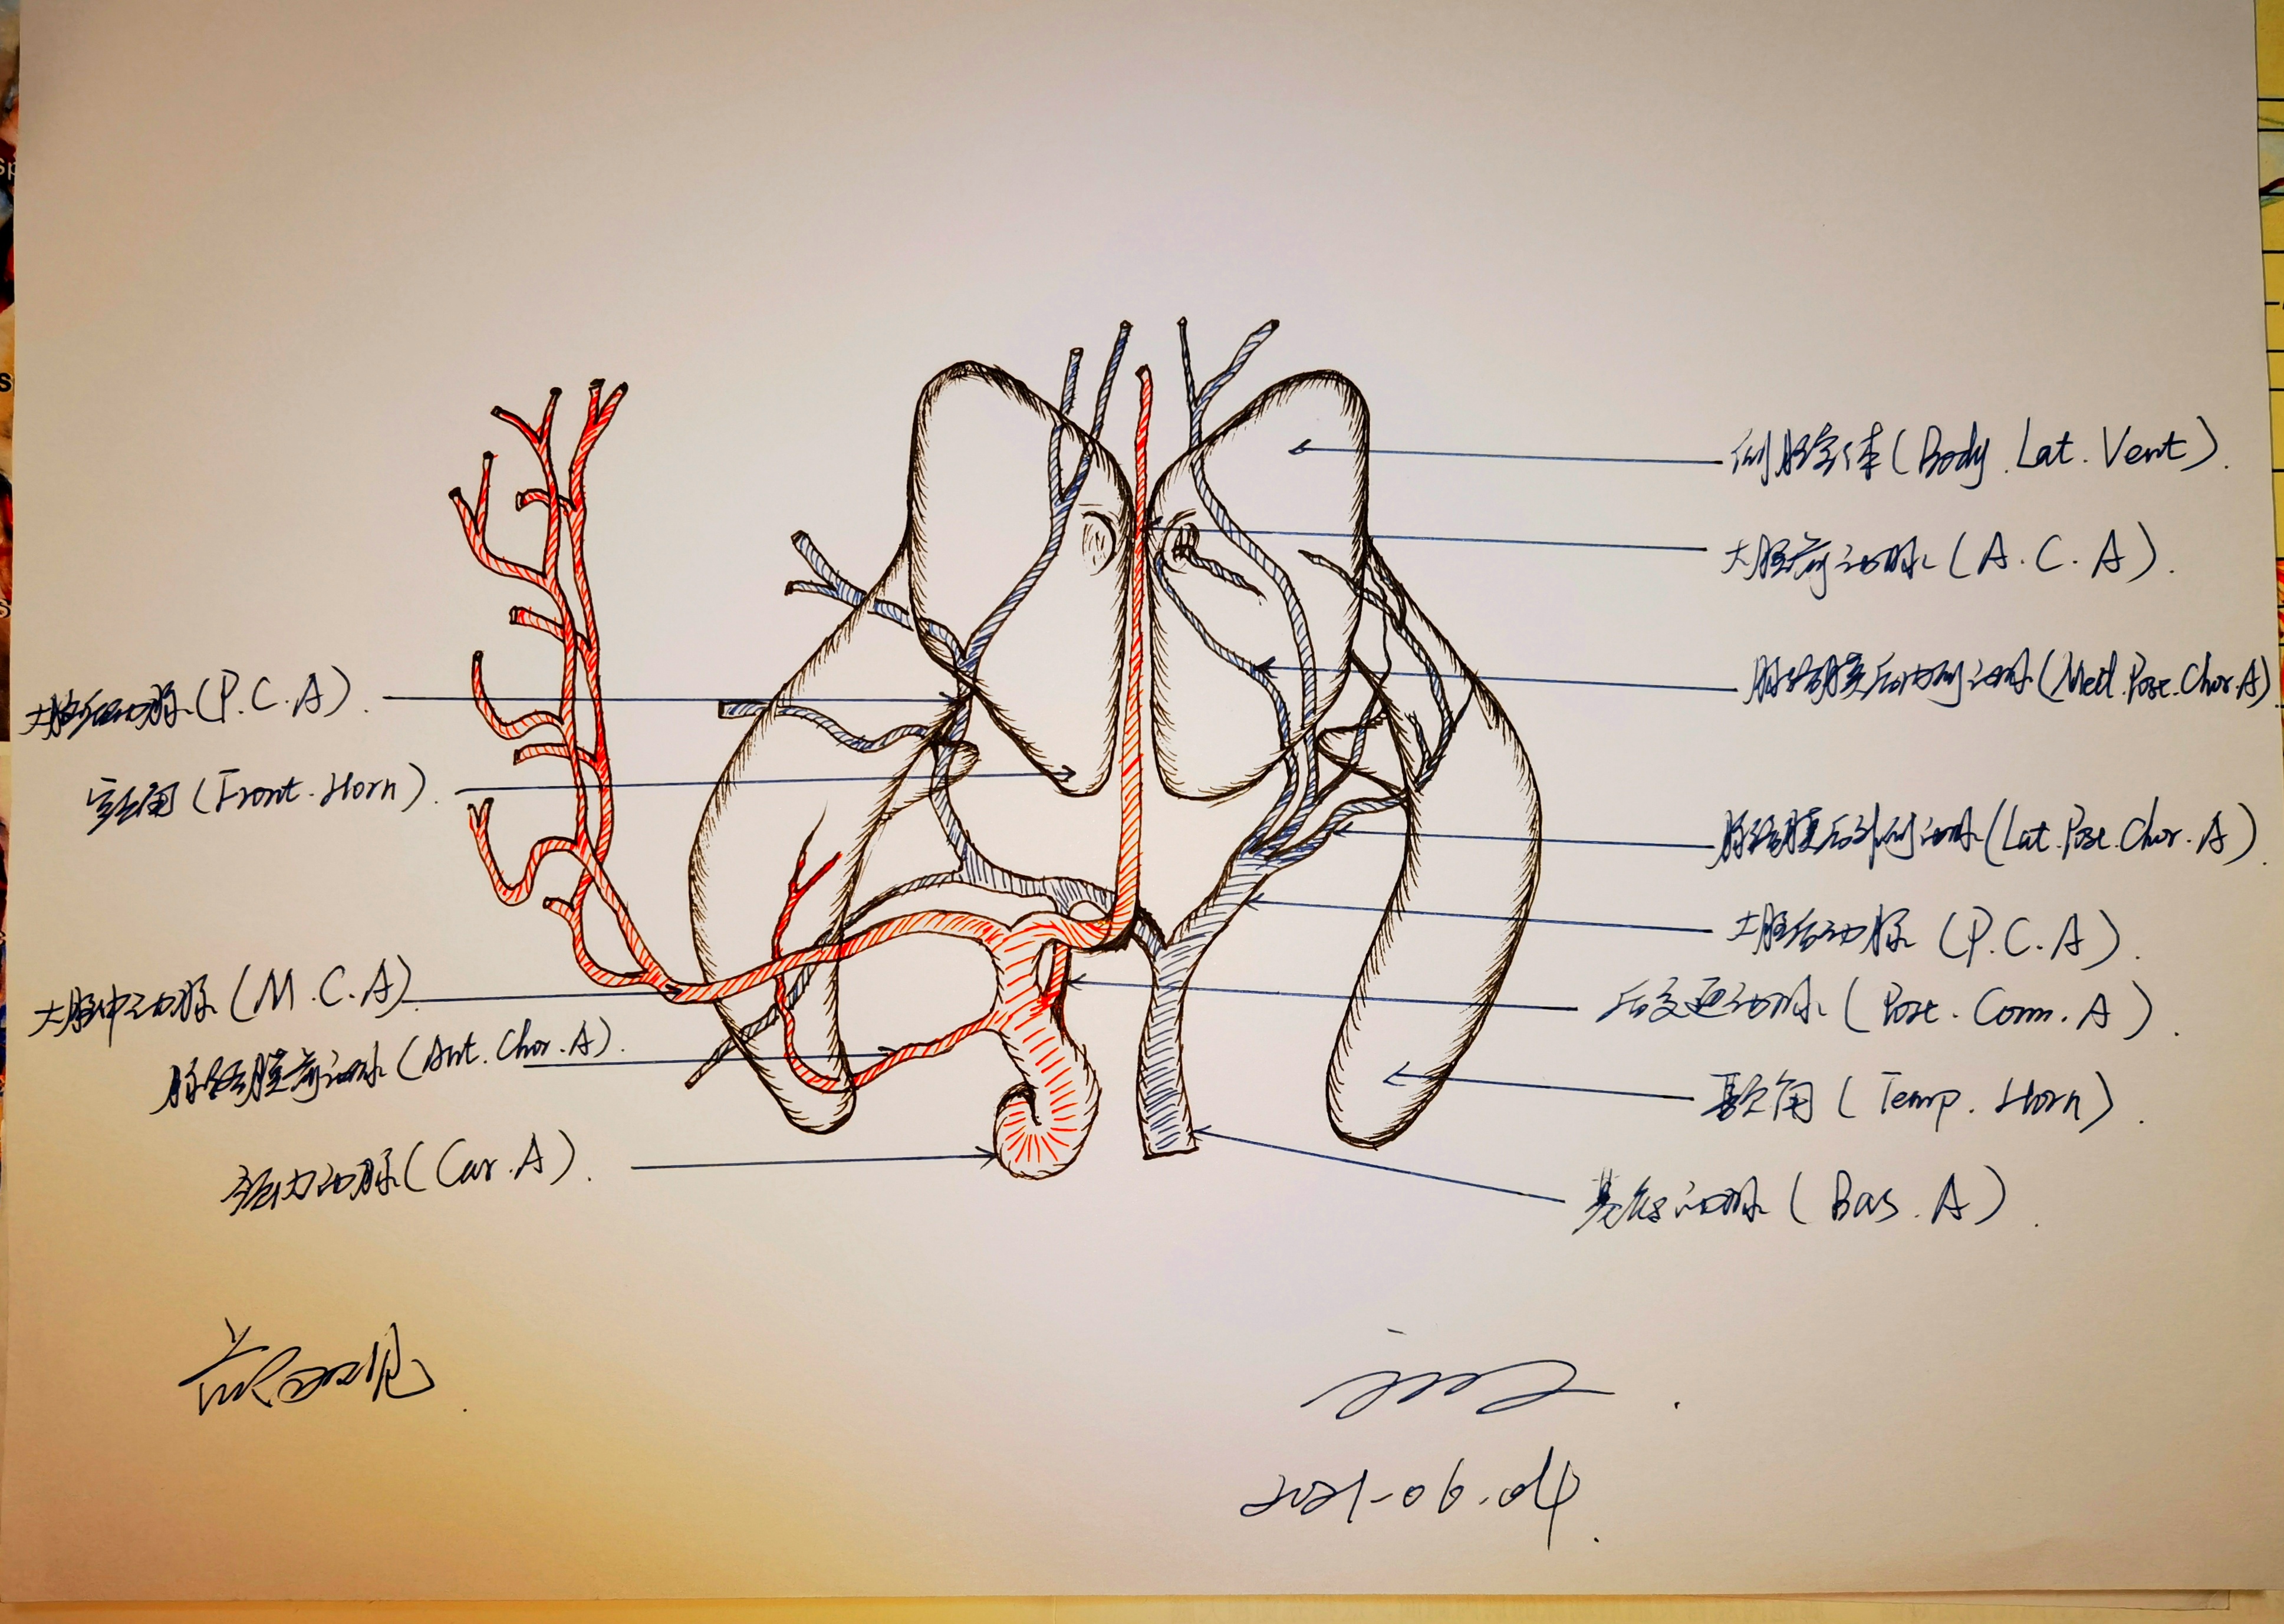 侧脑室体(Body.Lat.Vent).
大脑前动脉(A.C.A).
脉络膜后内侧动脉(Med.Post.Chor.A)
脉络膜后外侧动脉(Lat.Post.Chor.A).
大脑后动脉(P.C.A).
后交通动脉(Post.Comm.A).
颞角(Temp.Horn).
基底动脉(Bas.A).
大脑后动脉(P.C.A).
额角(Front.Horn).
大脑中动脉(M.C.A).
脉络膜前动脉(Ant.Chor.A).
颈内动脉(Car.A).
2021-06.04.